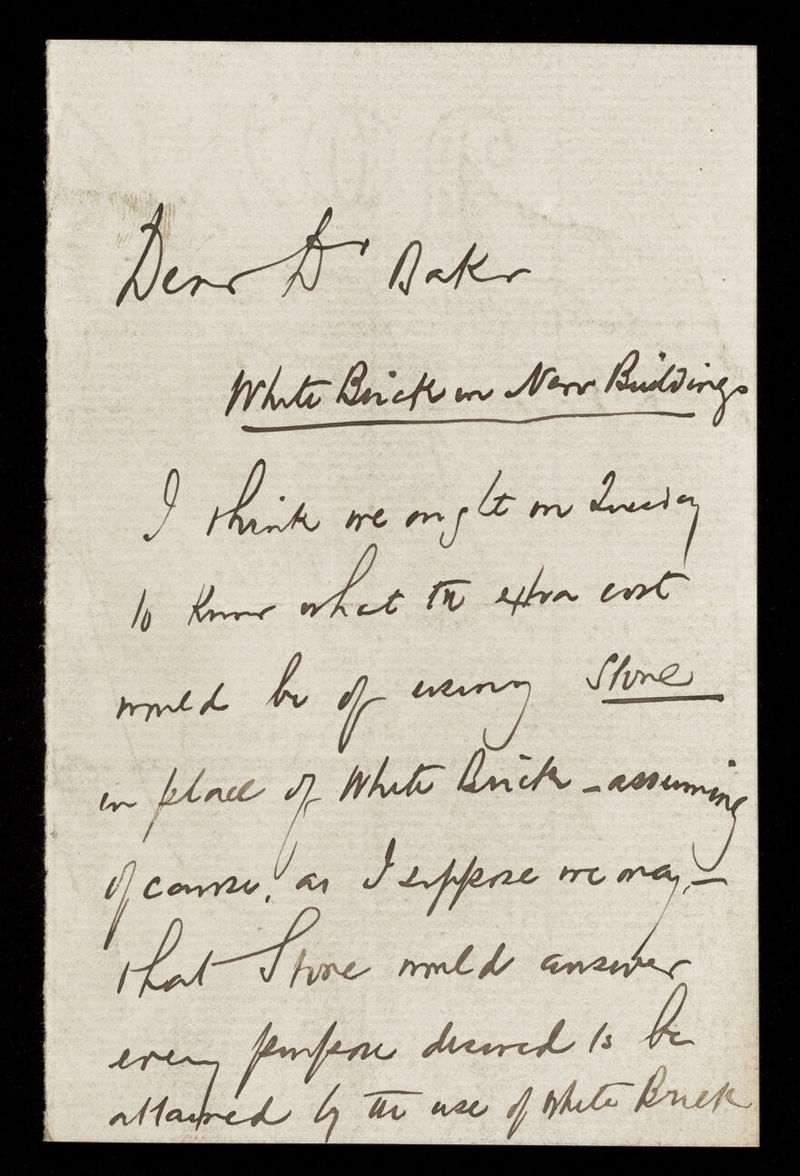 Dear Dr Baker
White Brick in New Buildings
I think we ought on Tuesday
to know what the extra cost
would be of using Stone
in place of White Brick – assuming
of course, as I suppose we may, –
that Stone would answer
every purpose desired to be
attained by the use of White Brick